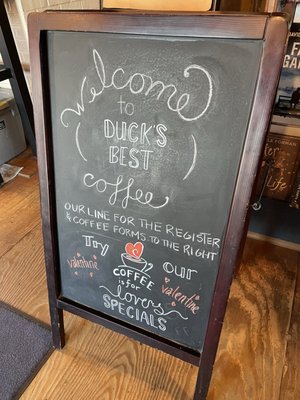 Welcome
to
DUCK'S
BEST
Coffee
OUR LINE FOR THE REGISTER
& COFFEE FORMS TO THE RIGHT
Try our
valentine
COFFEE
is for
lovers
valentine
SPECIALS